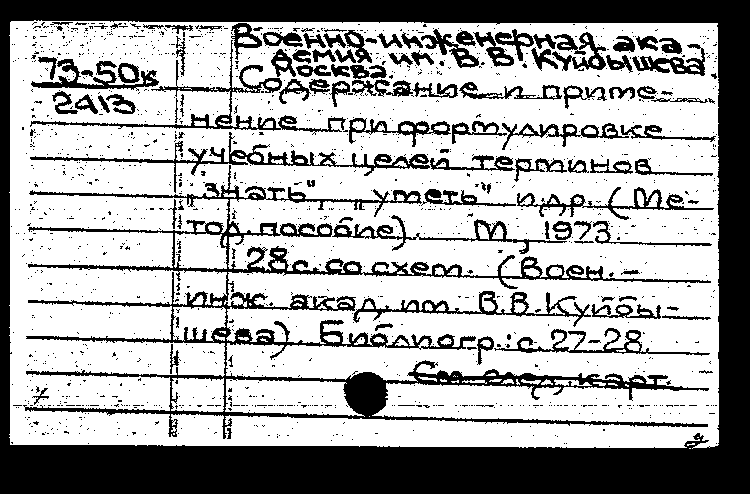 Военно-инженерная ака-
демия им. В.В. Куйбышева.
Москва.
73-50к
2413
Содержание и приме-
нение при формулировке
учебных целей терминов
"знать", "уметь" и др. (Ме-
тод. пособие). М., 1973.
28 с. со схем. (Воен.-
инж. акад. им. В.В. Куйбы-
шева). Библиогр.: с. 27-28.
См. след. карт.